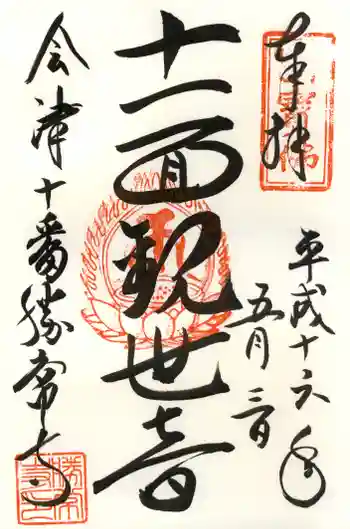 奉拝
平成十六年
五月三日
十一面観世音
会津十番勝常寺